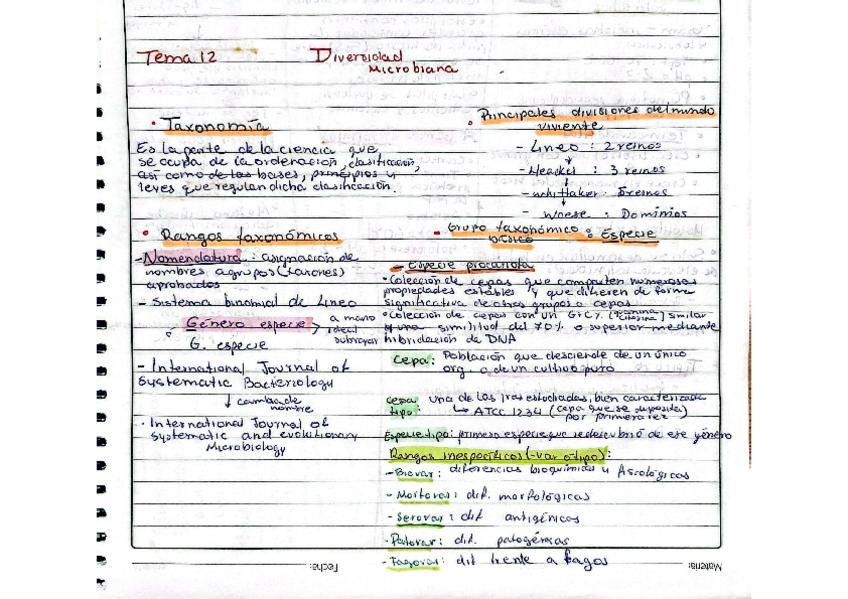 Tema 12
Diversidad
Microbiana
• Taxonomía
Es la parte de la ciencia que,
se ocupa de la ordenación, clasificación,
así como de las bases, principios y
leyes que regulan dicha clasificación.
• Principales divisiones del mundo
viviente
- Lineo : 2 reinos
↓
- Haeckel : 3 reinos
↓
- Whittaker : 5 reinos
↓
- Woese : Dominios
• Rangos taxonómicos
- Nomenclatura : asignación de
nombres a grupos (taxones)
aprobados
- Sistema binomial de Lineo
Género especie → a mano
ideal
subrayar
G. especie
- International Journal of
Systematic Bacteriology
↓ cambia de
nombre
• International Journal of
Systematic and evolutionary
Microbiology
• Grupo taxonómico : Especie
básico
- Especie procariota
• Colección de cepas que comparten numerosas
propiedades estables y que difieren de forma
significativa de otros grupos o cepas
• Colección de cepas con un G+C% similar
y una similitud del 70% o superior mediante
hibridación de DNA
Cepa: Población que desciende de un único
org. o de un cultivo puro
cepa
tipo: una de las 1ras estudiadas, bien caracterizada
↳ ATCC 1234 (cepa que se deposita)
por primera vez
Especie tipo: primera especie que se describió de ese género
Rangos inespecíficos (-var o tipo):
- Biovar : diferencias bioquímicas y fisiológicas
- Morfovar : dif. morfológicas
- Serovar : dif antigénicas
- Patovar : dif. patogénicas
- Fagovar : dif frente a fagos
Fecha:
Materia: